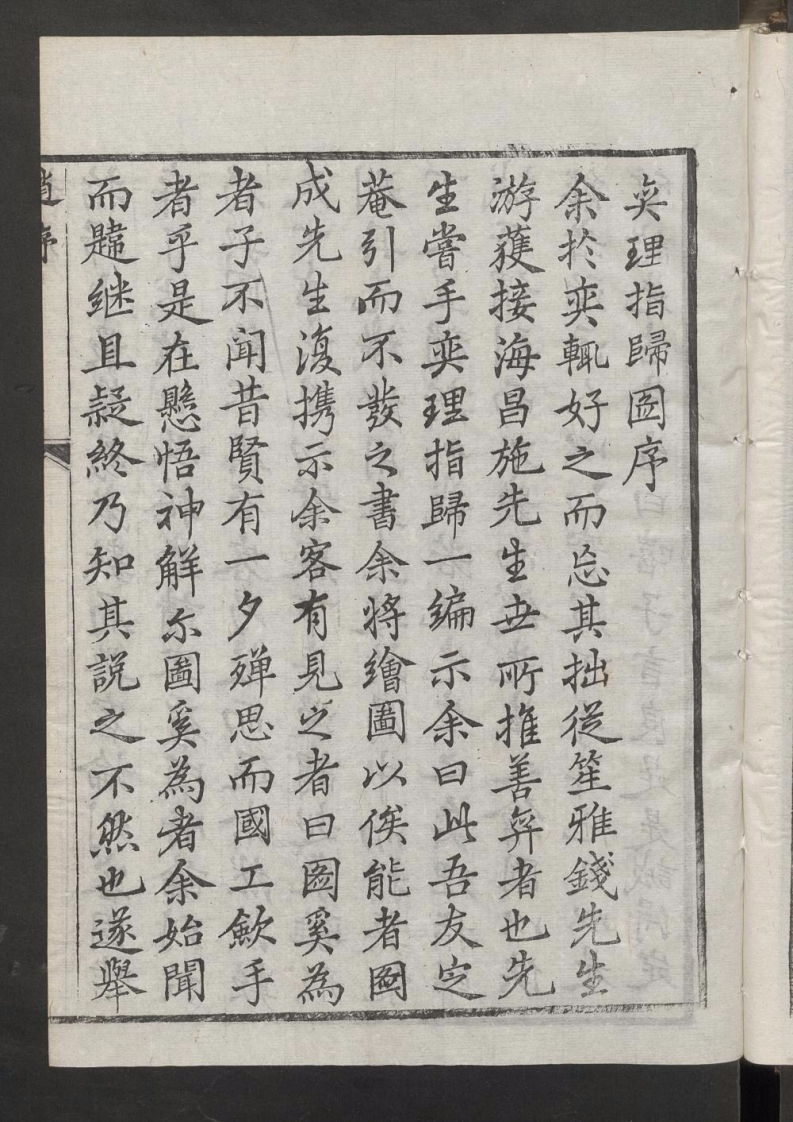 奕理指歸圖序
余於奕輒好之而忘其拙從笙雅錢先生
游獲接海昌施先生世所推善弈者也先
生嘗手奕理指歸一編示余曰此吾友定
菴引而不發之書余將繪圖以俟能者圖
成先生復携示余客有見之者曰圖奚為
者子不聞昔賢有一夕殫思而國工歛手
者乎是在懸悟神解尔圖奚為者余始聞
而韙继且疑終乃知其說之不然也遂舉
序